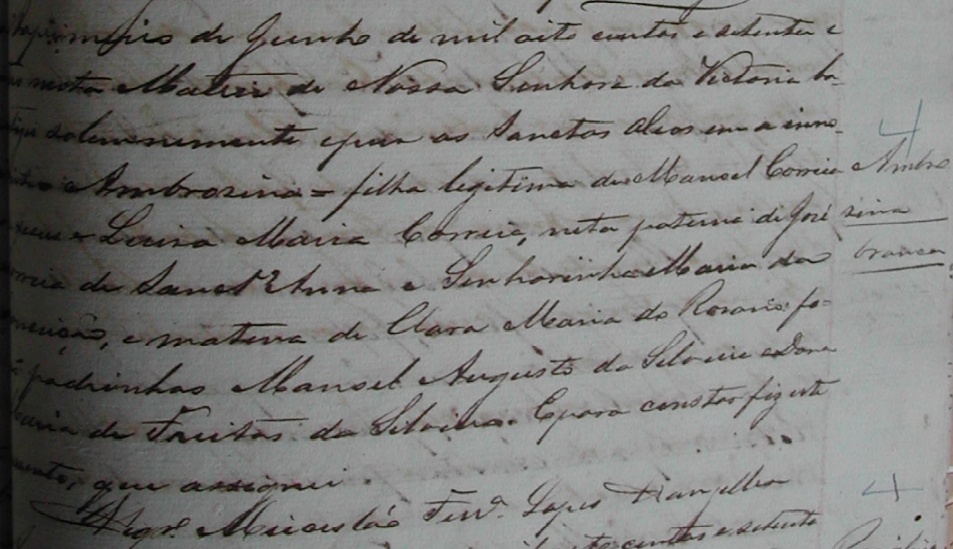 primeiro de Junho de mil oito centos e setenta e
nesta Matriz de Nossa Senhora da Victoria ba-
solennemente e puz os Sanctos Oleos em a inno-
Ambrosina = filha legitima de Manoel Correia
Luiza Maria Correia, neta paterna de José
de Sanct'Anna e Senhorinha Maria da
e materna de Clara Maria do Rosario: fo-
padrinhos Manoel Augusto da Silveira e Dona
Maria de Freitas da Silveira. E para constar fiz este
que assignei.
Lopes
centos e setenta
4
Ambro
sina
branca
4